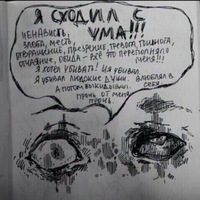 Я СХОДИЛ С
УМА!!!
НЕНАВИСТЬ,
ЗЛОБА, МЕСТЬ,
ОТВРАЩЕНИЕ, ПРЕЗРЕНИЕ, ТРЕВОГА, ТОШНОТА,
ОТЧАЯНИЕ, ОБИДА - ВСЁ ЭТО ПЕРЕПОЛНЯЛО
МЕНЯ!!!
Я ХОТЕЛ УБИВАТЬ! И Я УБИВАЛ
Я УБИВАЛ ЛЮДСКИЕ ДУШИ. ВЛЮБЛЯЛ В
СЕБЯ
А ПОТОМ ВЫКИДЫВАЛ
ПРОЧЬ ОТ МЕНЯ
ПРОЧЬ.